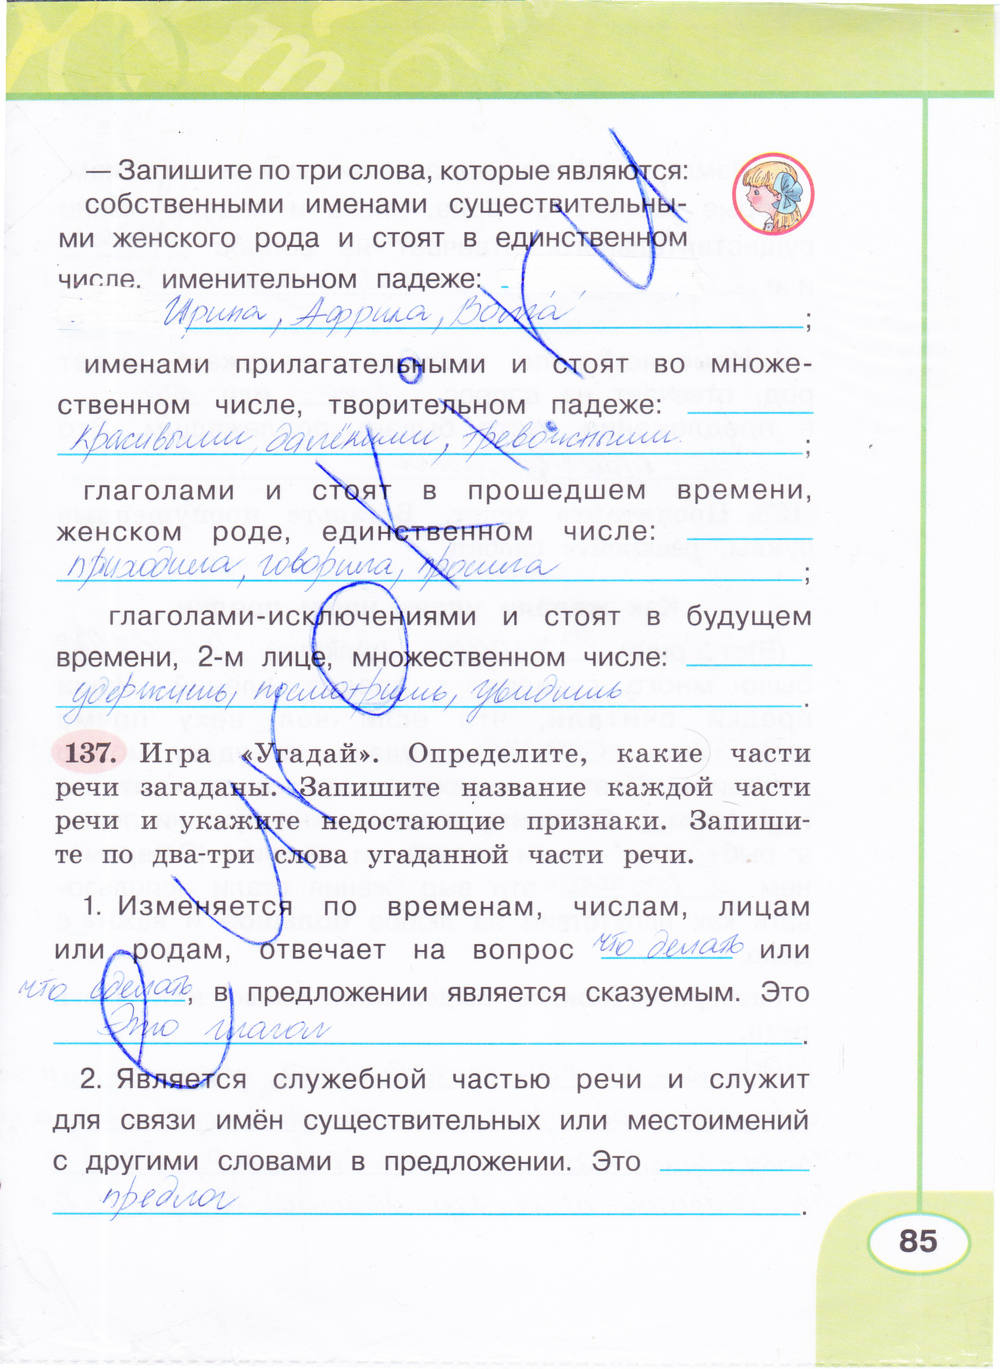 — Запишите по три слова, которые являются:
собственными именами существительны-
ми женского рода и стоят в единственном
числе, именительном падеже:
Ирина, Африка, Волга ;
именами прилагательными и стоят во множе-
ственном числе, творительном падеже:
красивыми, далёкими, тревожными. ;
глаголами и стоят в прошедшем времени,
женском роде, единственном числе:
приходила, говорила, прошла ;
глаголами-исключениями и стоят в будущем
времени, 2-м лице, множественном числе:
удержишь, посмотришь, увидишь .
137. Игра «Угадай». Определите, какие части
речи загаданы. Запишите название каждой части
речи и укажите недостающие признаки. Запиши-
те по два-три слова угаданной части речи.
1. Изменяется по временам, числам, лицам
или родам, отвечает на вопрос что делать или
что сделать, в предложении является сказуемым. Это
Это глагол .
2. Является служебной частью речи и служит
для связи имён существительных или местоимений
с другими словами в предложении. Это
предлог .
85